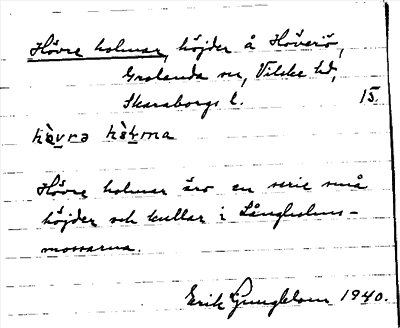 Hövre holmar, höjder å Höverö,
Grolanda sn, Vilske hd,
Skaraborgs l. 15.
hèvrə hòḷma
Hövre holmar äro en serie små
höjder och kullar i Långholms-
mossarna.
Erik Ljungblom 1940.